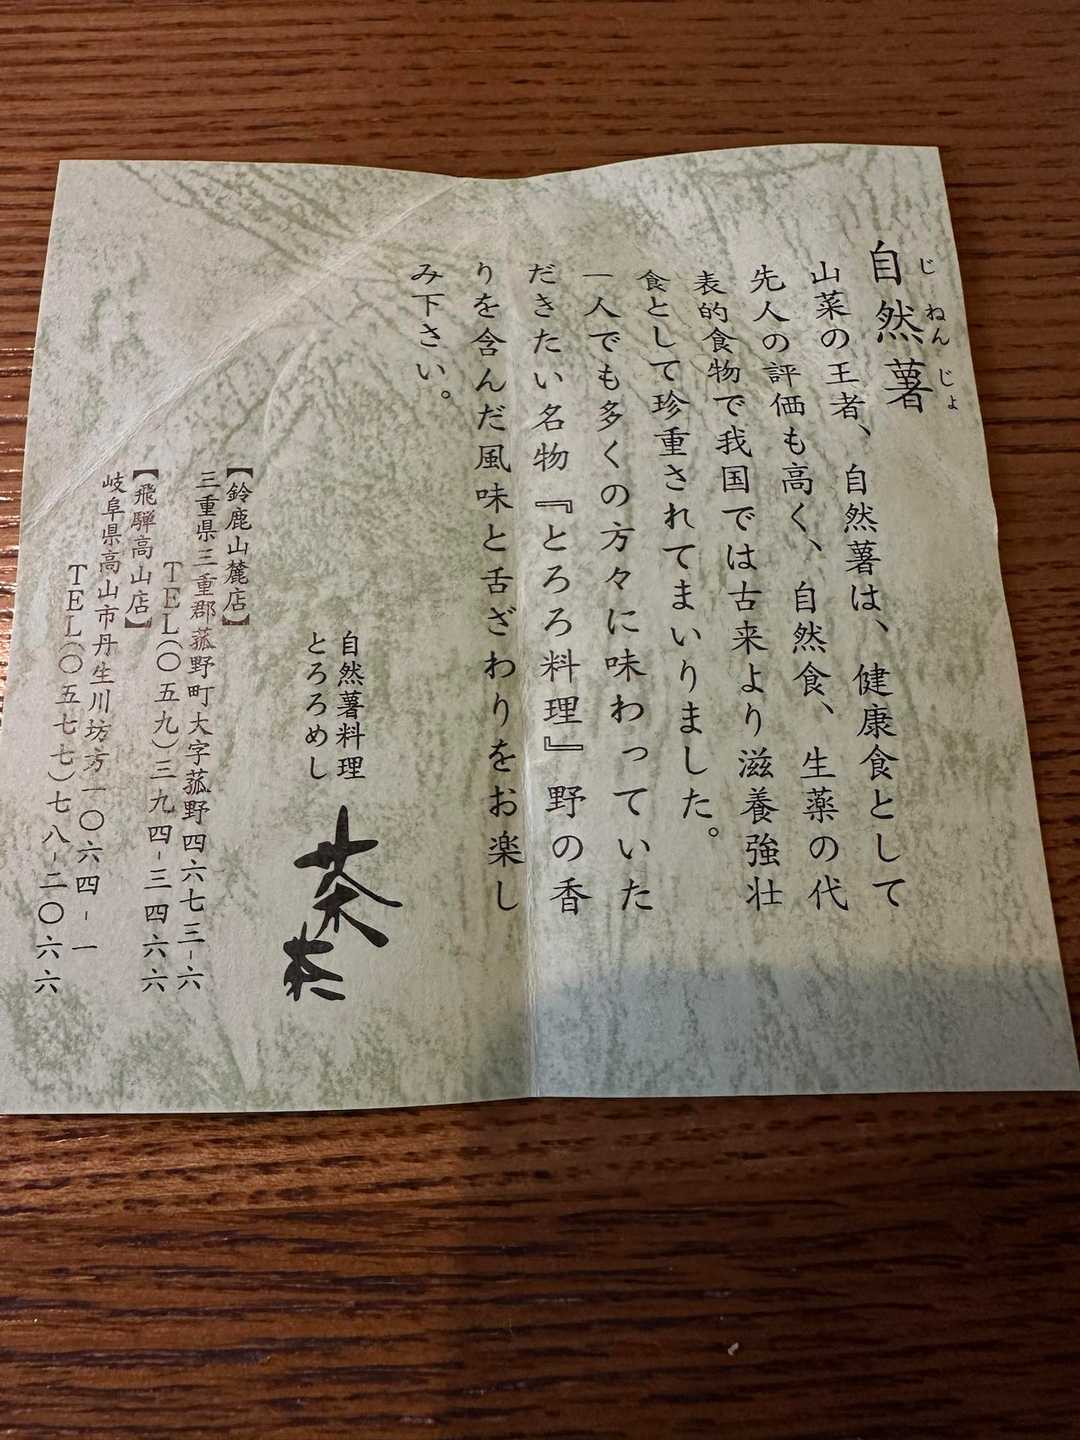 自然薯
じねんじょ
山菜の王者、自然薯は、健康食として
先人の評価も高く、自然食、生薬の代
表的食物で我国では古来より滋養強壮
食として珍重されてまいりました。
一人でも多くの方々に味わっていた
だきたい名物『とろろ料理』野の香
りを含んだ風味と舌ざわりをお楽し
み下さい。
自然薯料理
とろろめし
茶茶
【鈴鹿山麓店】
三重県三重郡菰野町大字菰野四六七三-六
TEL(〇五九)三九四-三四六六
【飛騨高山店】
岐阜県高山市丹生川坊方一〇六四-一
TEL(〇五七七)七八-二〇六六